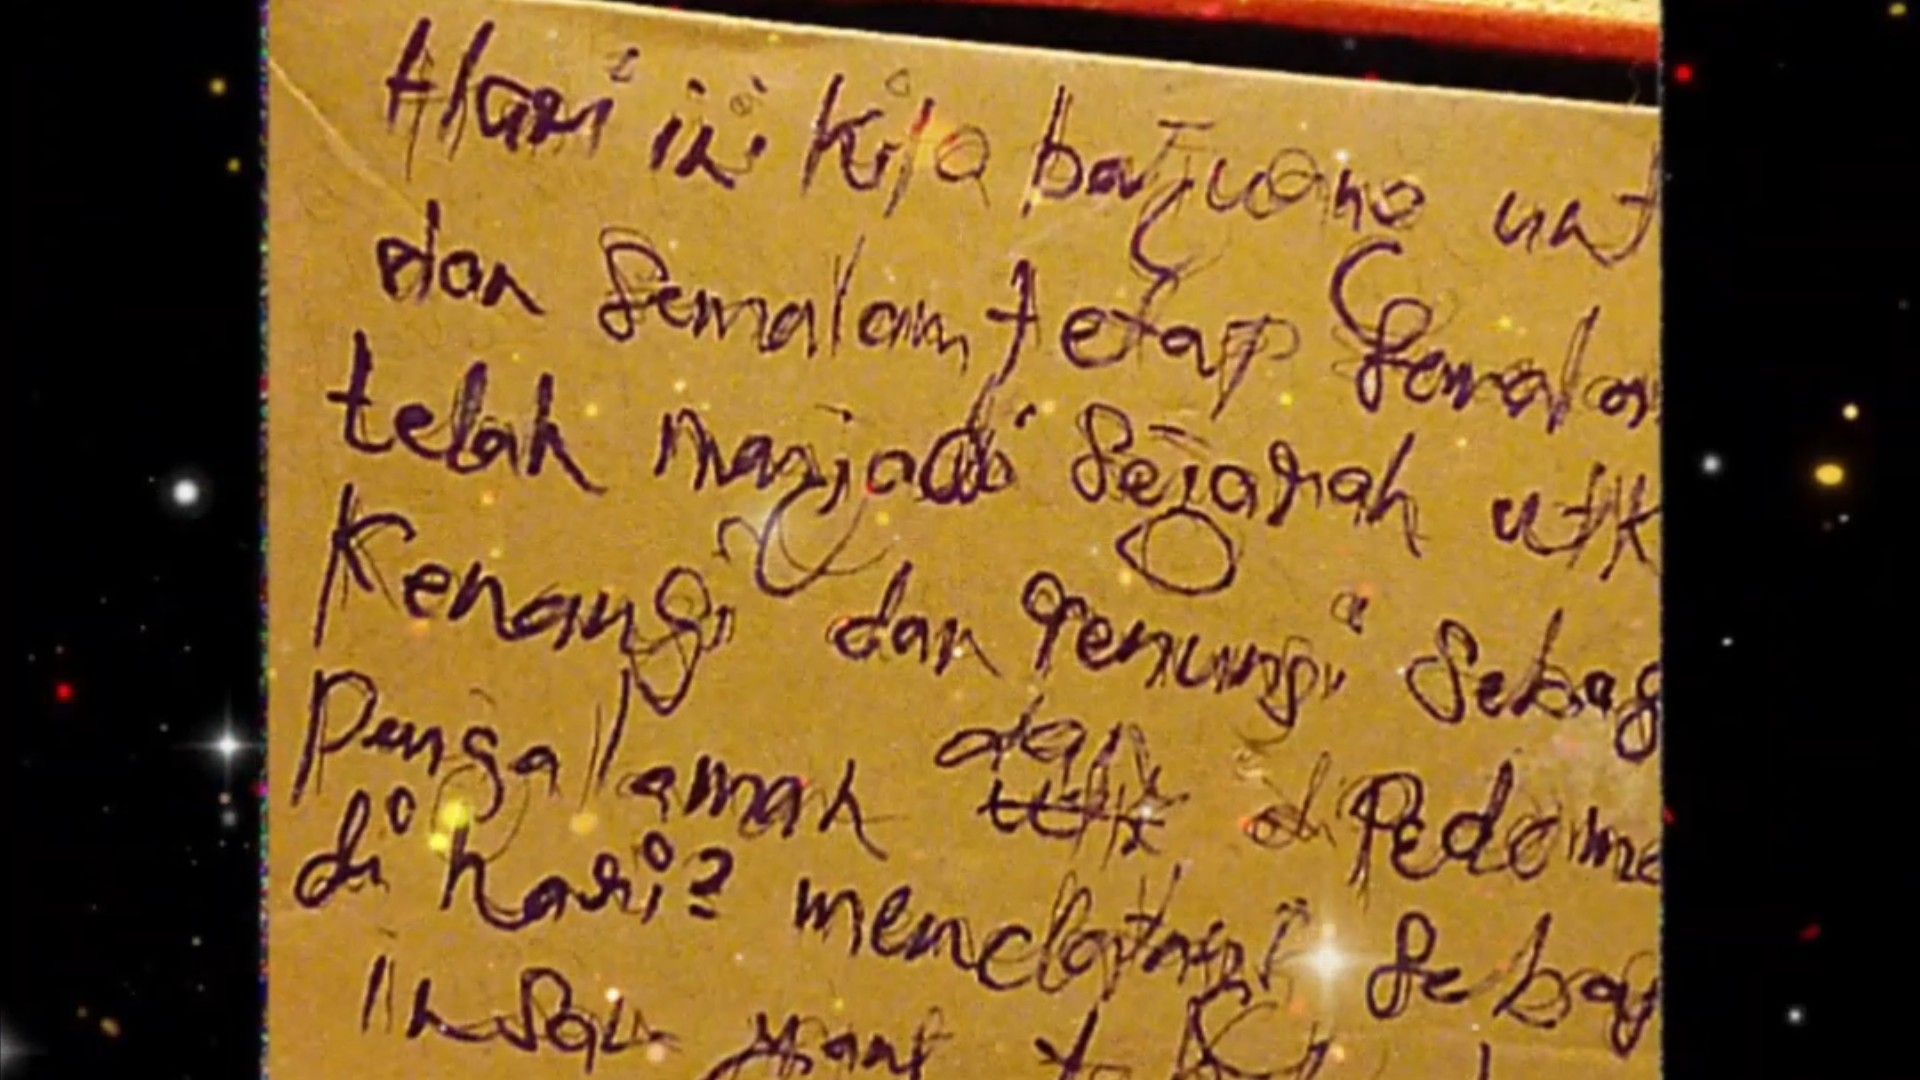 Hari ini kita bajuang unt
dan semalam tetap semalam
telah menjadi sejarah utk
Kenangi dan renungi sebag
Pengalaman dan di Pedoma
di hari2 mendatangi sebag
insan yang